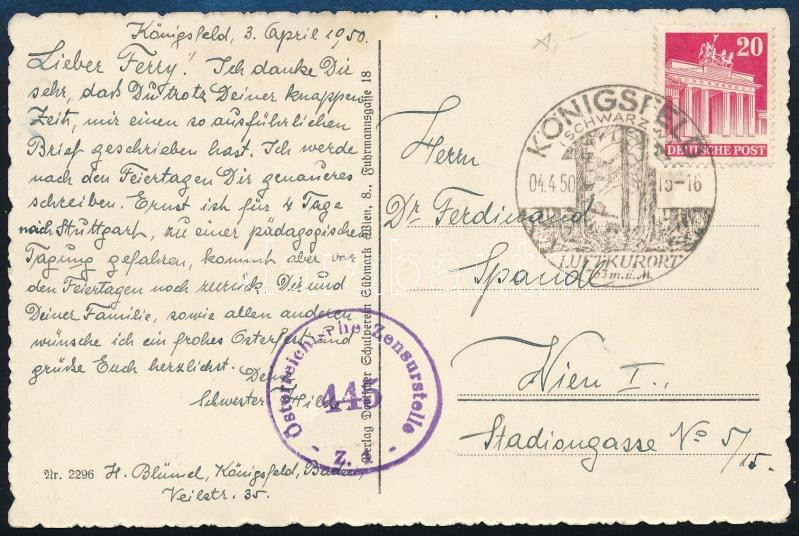 Königsfeld, 3. April 1950.
Lieber Ferry! Ich danke Dir
sehr, daß Du trotz Deiner knappen
Zeit, mir einen so ausführlichen
Brief geschrieben hast. Ich werde
nach den Feiertagen Dir genaueres
schreiben. Ernst ist für 4 Tage
nach Stuttgart, zu einer pädagogischen
Tagung gefahren, kommt aber vor
den Feiertagen noch zurück. Dir und
Deiner Familie, sowie allen anderen
wünsche ich ein frohes Osterfest und
grüße Euch herzlichst. Deine
Schwester Hilde
Nr. 2296 H. Blümel, Königsfeld, Baden,
Österreichische Zensurstelle
445
- Z. -
Verlag Deutscher Schulverein Südmark Wien, 8., Fuhrmannsgasse 18
20
DEUTSCHE POST
KÖNIGSFELD
(SCHWARZW.)
04.4.50 15-16
LUFTKURORT
763 m.ü.M.
Herrn
Dr. Ferdinand
Spandl
Wien I.,
Stadiongasse No 5/15.